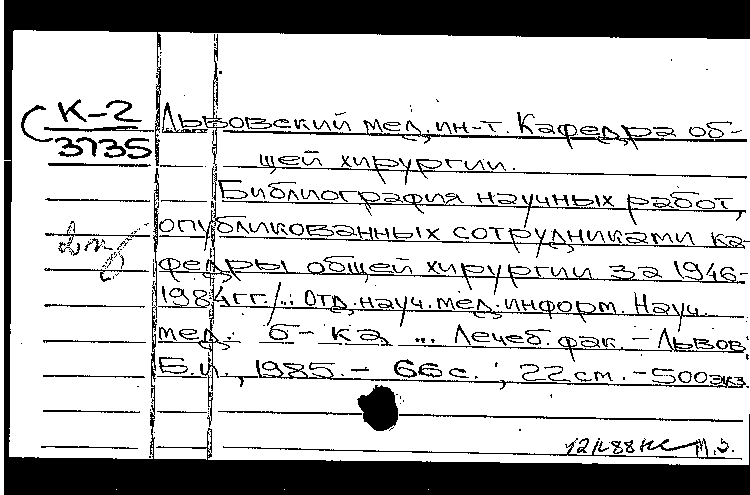 К-2
3735
Львовский мед. ин-т. Кафедра об-
щей хирургии.
Библиография научных работ,
опубликованных сотрудниками ка
федры общей хирургии за 1946-
1984гг/..: Отд. науч. мед. информ. Науч.
мед. б-ка, .. Лечеб. фак. - Львов:
Б.и., 1985. - 66с. ; 22см. - 500экз.